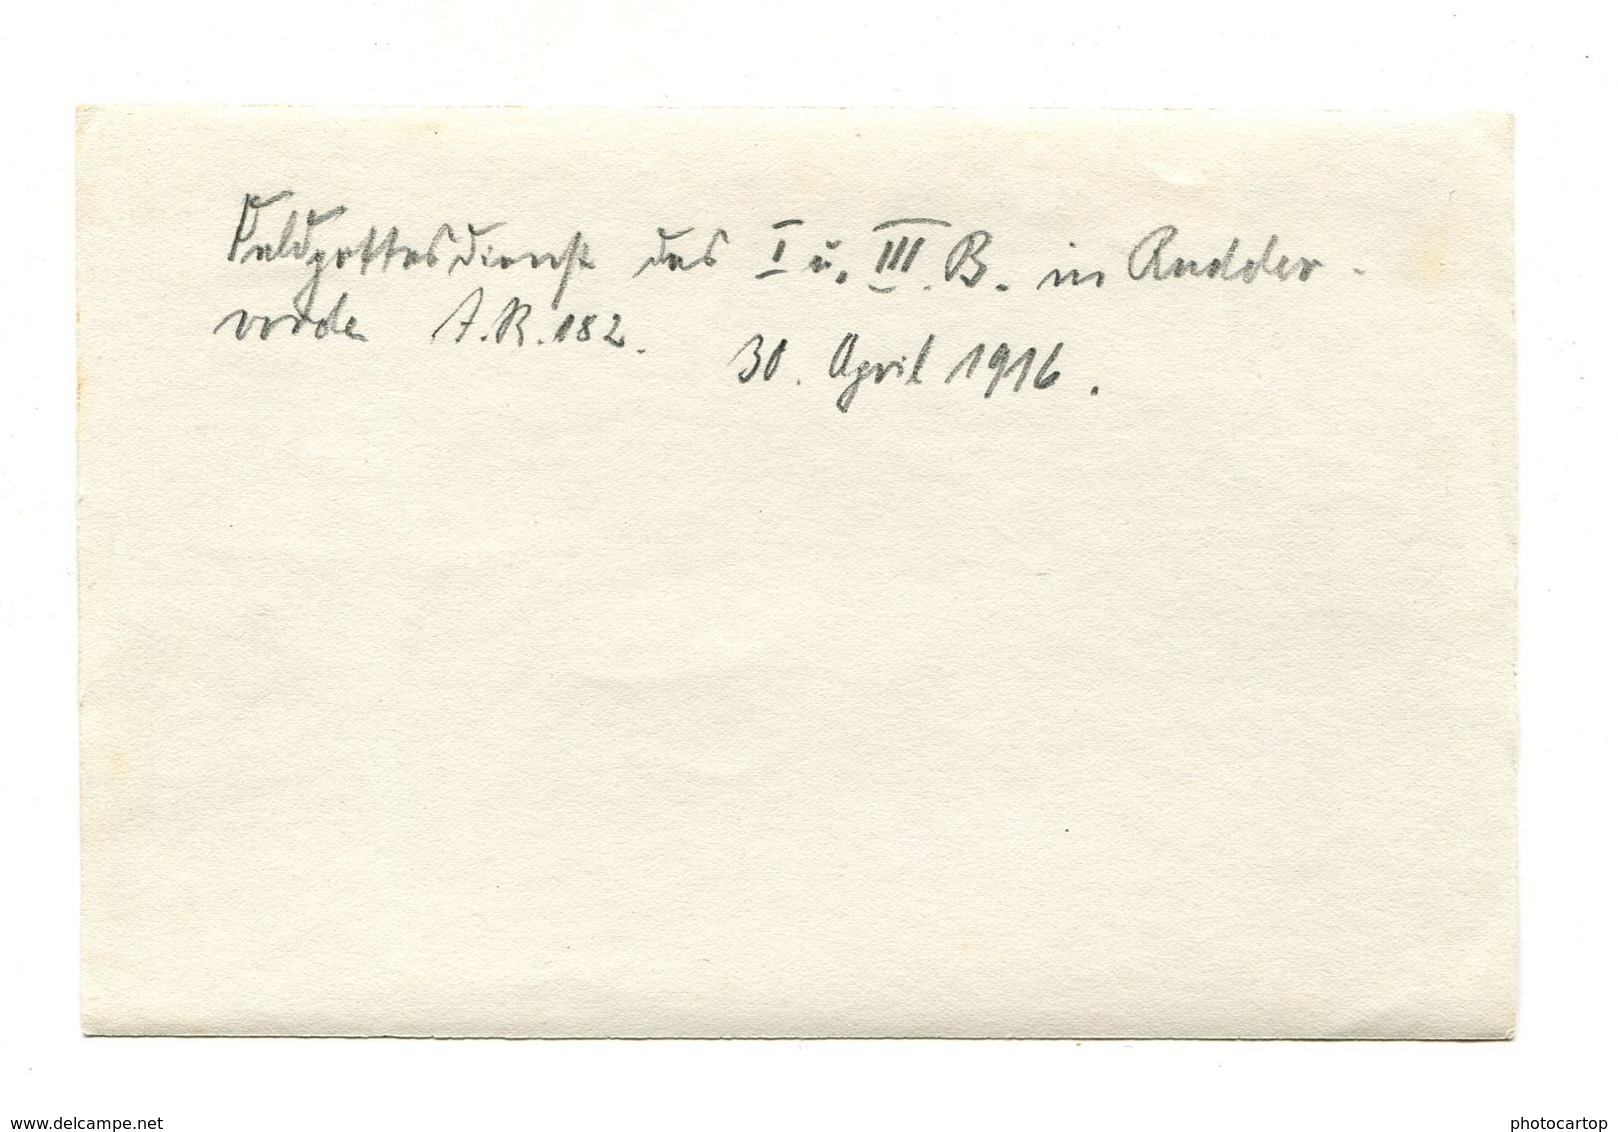 Feldgottesdienst des I u. III. B. in Rudder-
vorde J.R. 182.
30. April 1916.
delcampe.net
photocartop